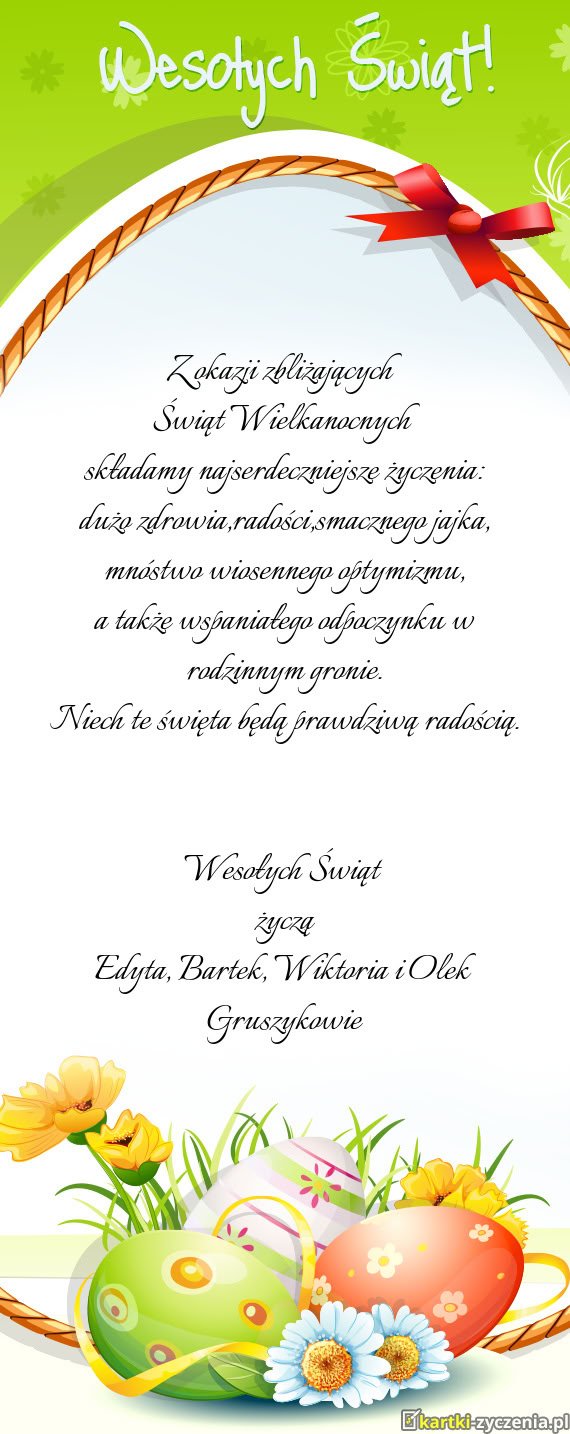 Wesołych Świąt!
Z okazji zbliżających
Świąt Wielkanocnych
składamy najserdeczniejsze życzenia:
dużo zdrowia,radości,smacznego jajka,
mnóstwo wiosennego optymizmu,
a także wspaniałego odpoczynku w
rodzinnym gronie.
Niech te święta będą prawdziwą radością.
Wesołych Świąt
życzą
Edyta, Bartek, Wiktoria i Olek
Gruszykowie
kartki-zyczenia.pl